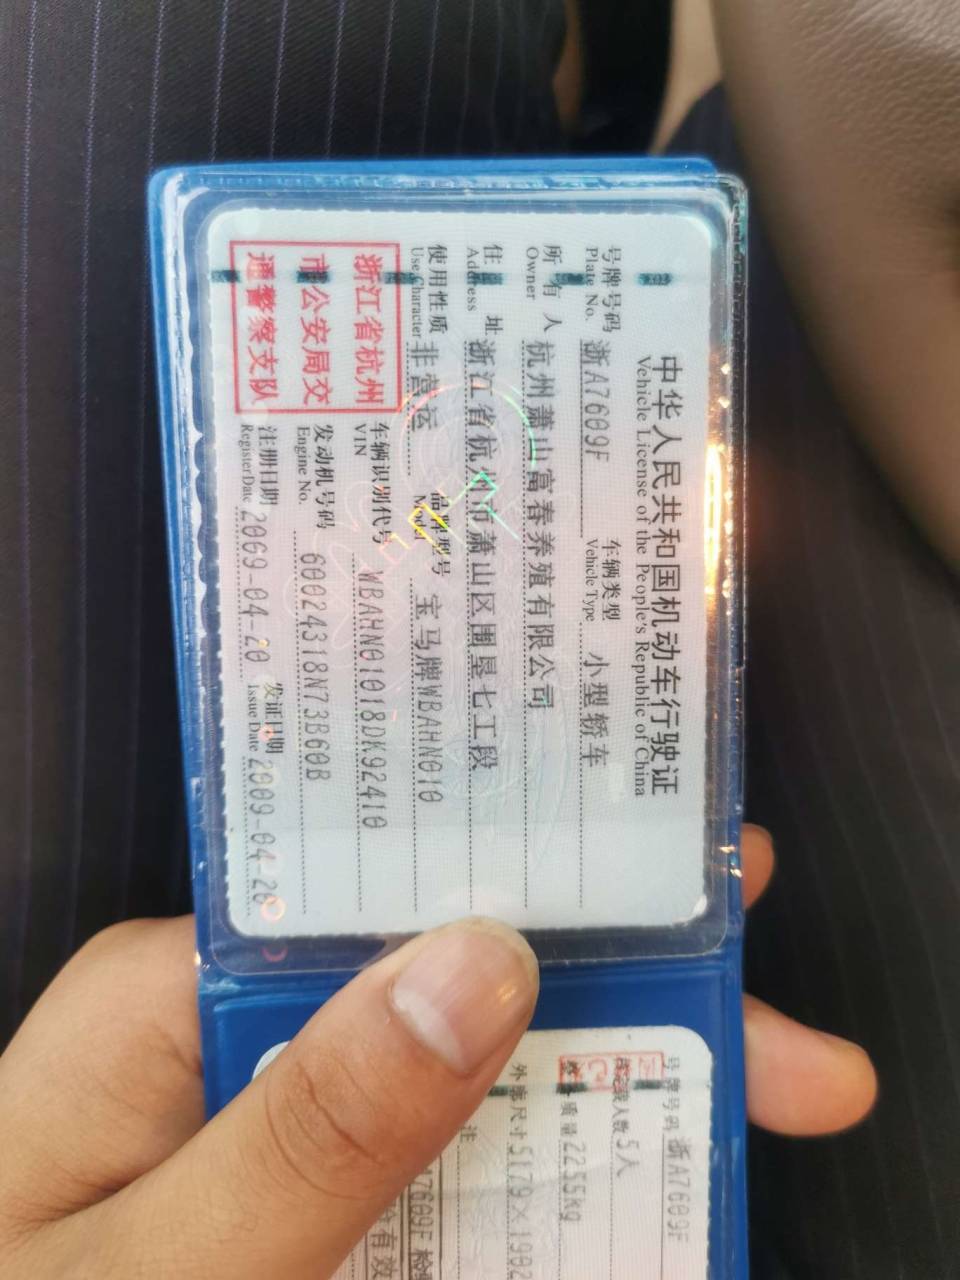 中华人民共和国机动车行驶证
Vehicle License of the People's Republic of China
号牌号码 浙A7609F 车辆类型 小型轿车
Plate No. Vehicle Type
所有人 杭州萧山富春养殖有限公司
Owner
住址 浙江省杭州市萧山区围垦七工段
Address
使用性质 非营运 品牌型号 宝马牌WBAHN010
Use Character Model
浙江省杭州
市公安局交
通警察支队
车辆识别代号 WBAHN01018DK92410
VIN
发动机号码 60024318N73B60B
Engine No.
注册日期 2009-04-20 发证日期 2009-04-20
Register Date Issue Date
号牌号码 浙A7609F
人数 5人
质量 2255kg
外廓尺寸 5179×1902
注
A7609F 检
有效